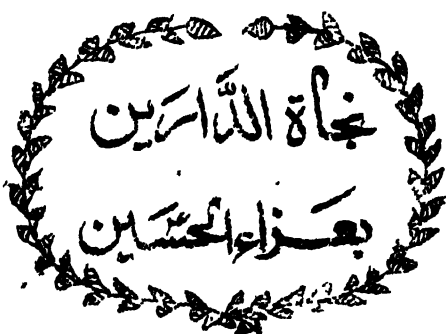 نجاة الدَّارَين
بعَزاءِ الحسَين